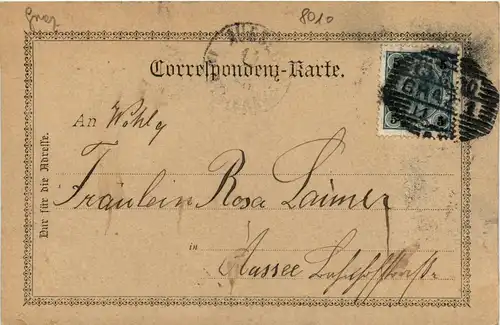 Graz
8010
Correspondenz-Karte.
An Wohlg
Nur für die Adresse.
Fräulein Rosa Laimer
in
Aussee Bahnhofstraße